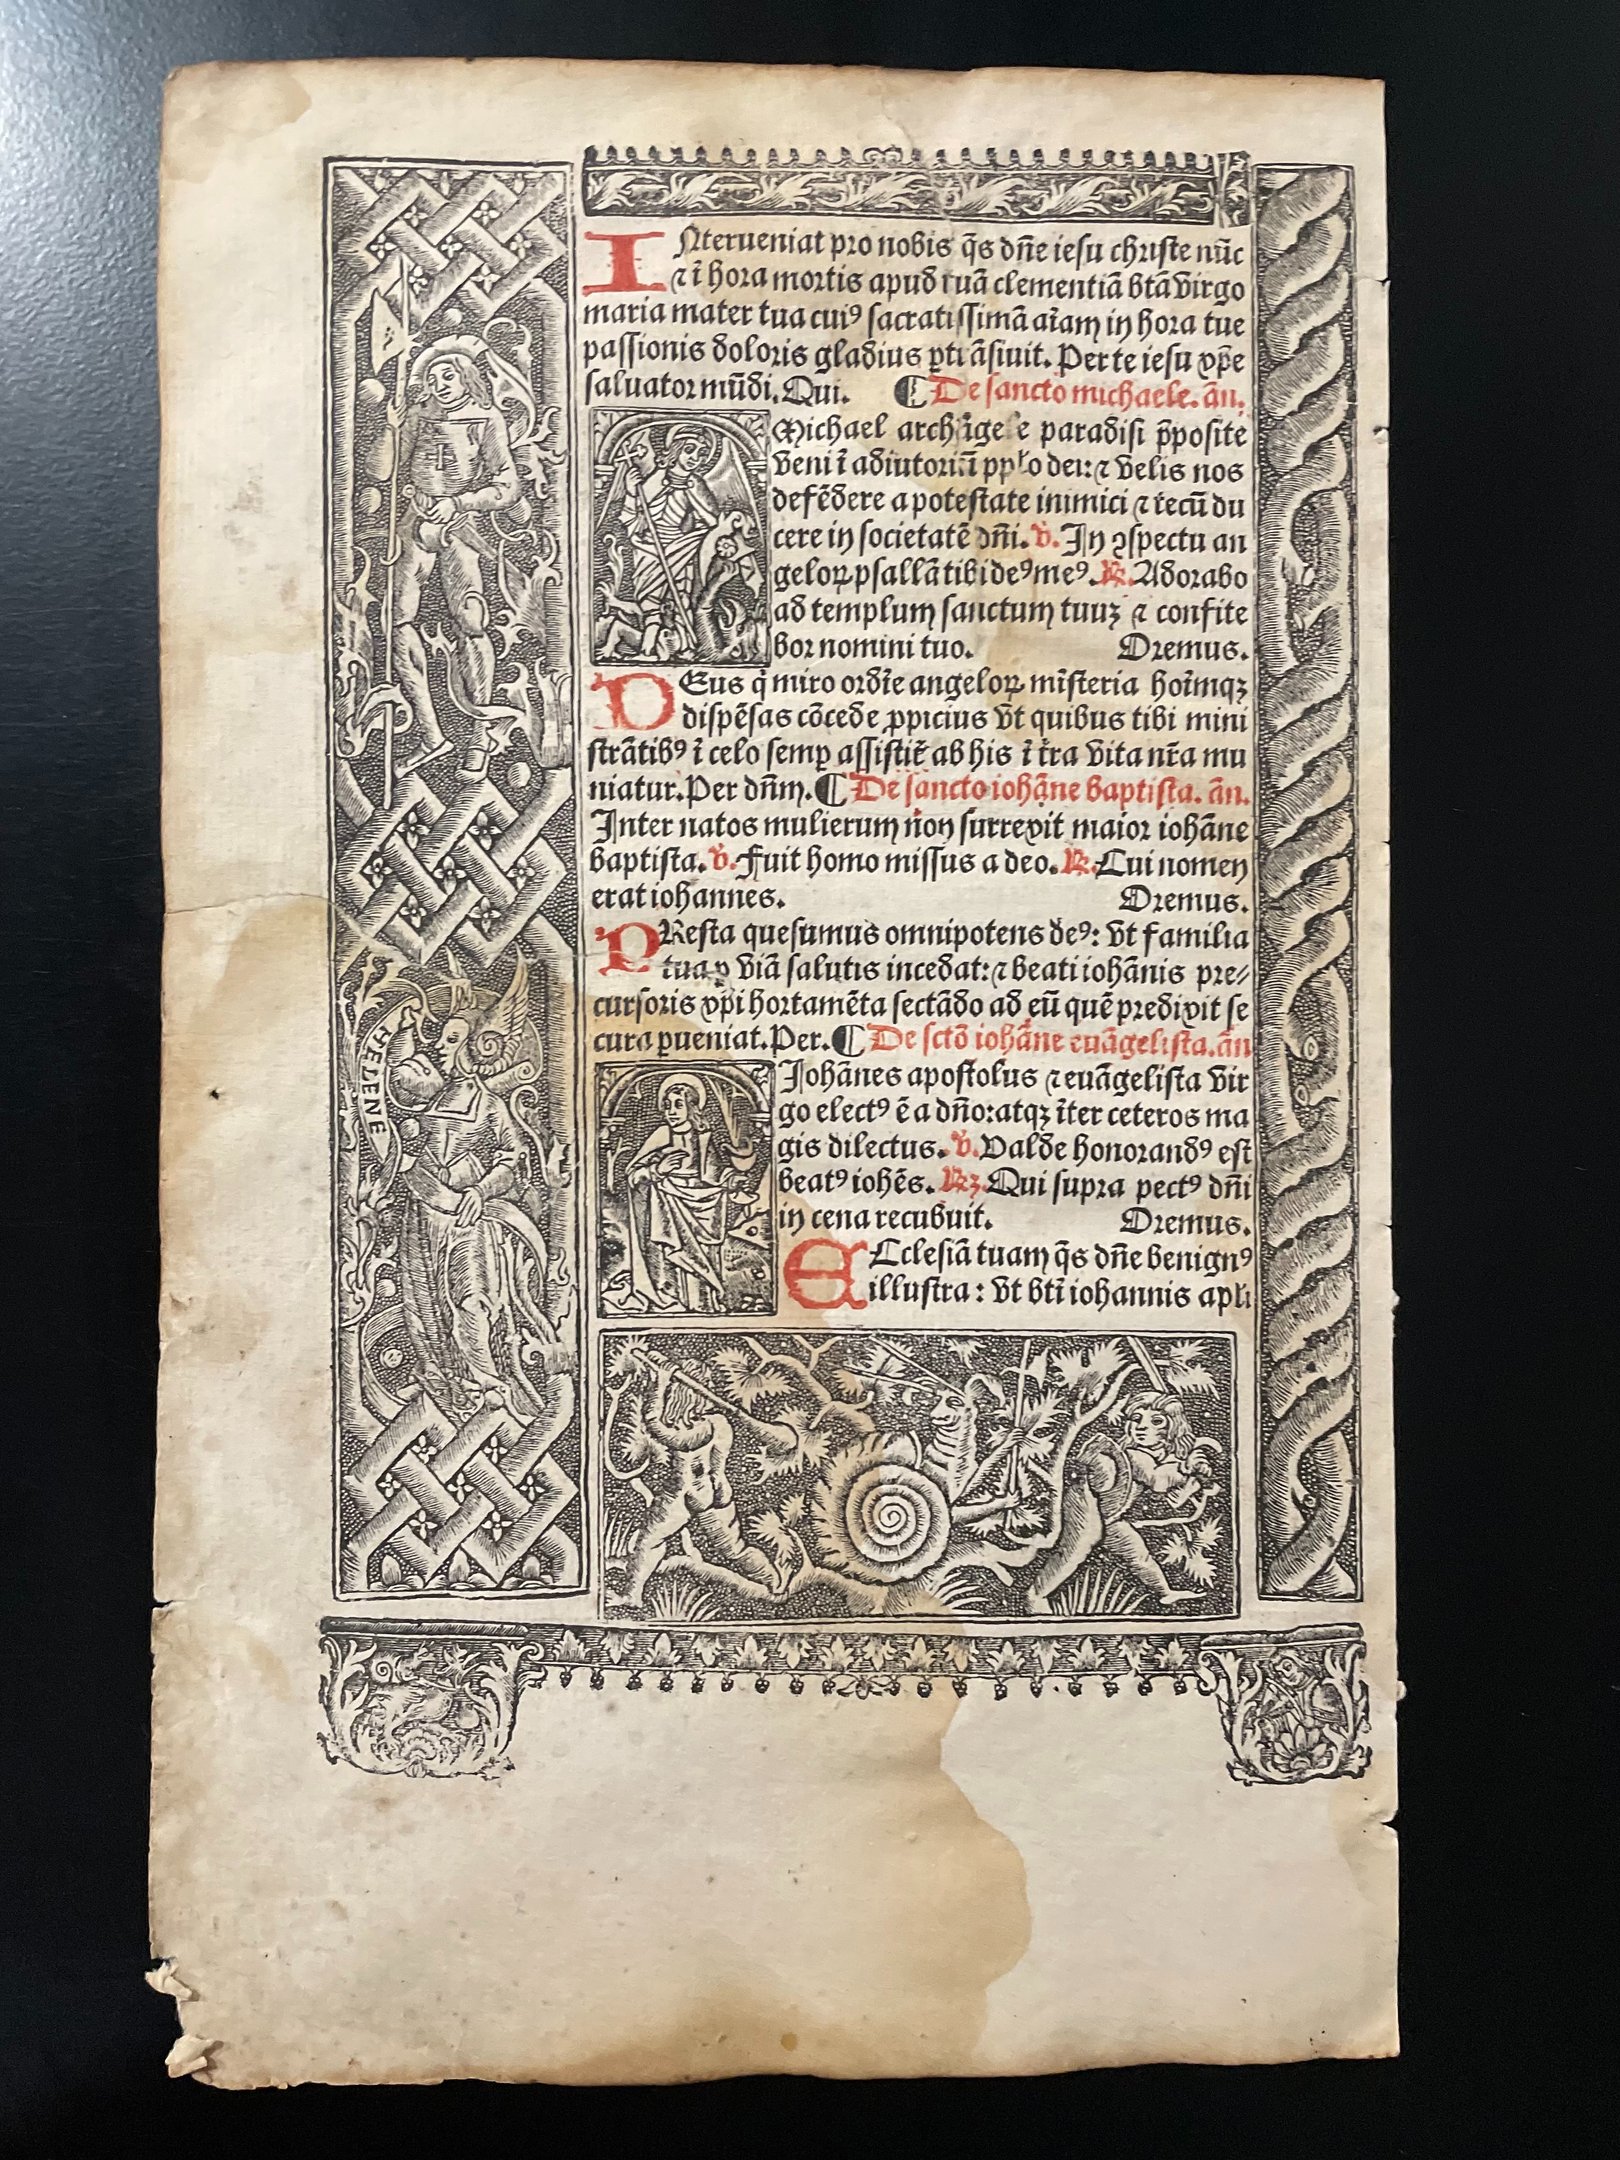 INterueniat pro nobis q̄s dn̄e iesu christe nūc
⁊ ī hora mortis apud tuā clementiā btā virgo
maria mater tua cuiꝰ sacratissimā aīam in hora tue
passionis doloris gladius ꝑtrāsiuit. Per te iesu xp̄e
saluator mūdi. Qui. ¶ De sancto michaele. an̄.
Michael archāgele paradisi p̄posite
veni ī adiutoriū pplo dei: ⁊ velis nos
defēdere a potestate inimici ⁊ tecū du
cere in societatē dn̄i. ℣. In ꝯspectu an
geloꝝ psallā tibi deꝰ meꝰ. ℟. Adorabo
ad templum sanctum tuuꝫ ⁊ confite
bor nomini tuo. Oremus.
DEus q̇ miro ordīe angeloꝝ mīsteria hoīmqꝫ
dispēsas cōcede ꝓpicius vt quibus tibi mini
strātibꝰ ī celo semꝑ assistit̄ ab his ī tr̄a vita nr̄a mu
niatur. Per dn̄m. ¶ De sancto iohāne baptista. an̄.
Inter natos mulierum non surrexit maior iohāne
baptista. ℣. Fuit homo missus a deo. ℟. Cui nomen
erat iohannes. Oremus.
PResta quesumus omnipotens deꝰ: vt familia
tua ꝑ viā salutis incedat: ⁊ beati iohānis pre⸗
cursoris xp̄i hortamēta sectādo ad eū quē predixit se
cura ꝑueniat. Per. ¶ De sctō iohāne euāgelista. an̄
Iohānes apostolus ⁊ euāgelista vir
go electꝰ ē a dn̄o: atqꝫ īter ceteros ma
gis dilectus. ℣. Valde honorandꝰ est
beatꝰ iohēs. ℟. Qui supra pectꝰ dn̄i
in cena recubuit. Oremus.
ECclesiā tuam q̄s dn̄e benignꝰ
illustra: vt btī iohannis apli
HELENE